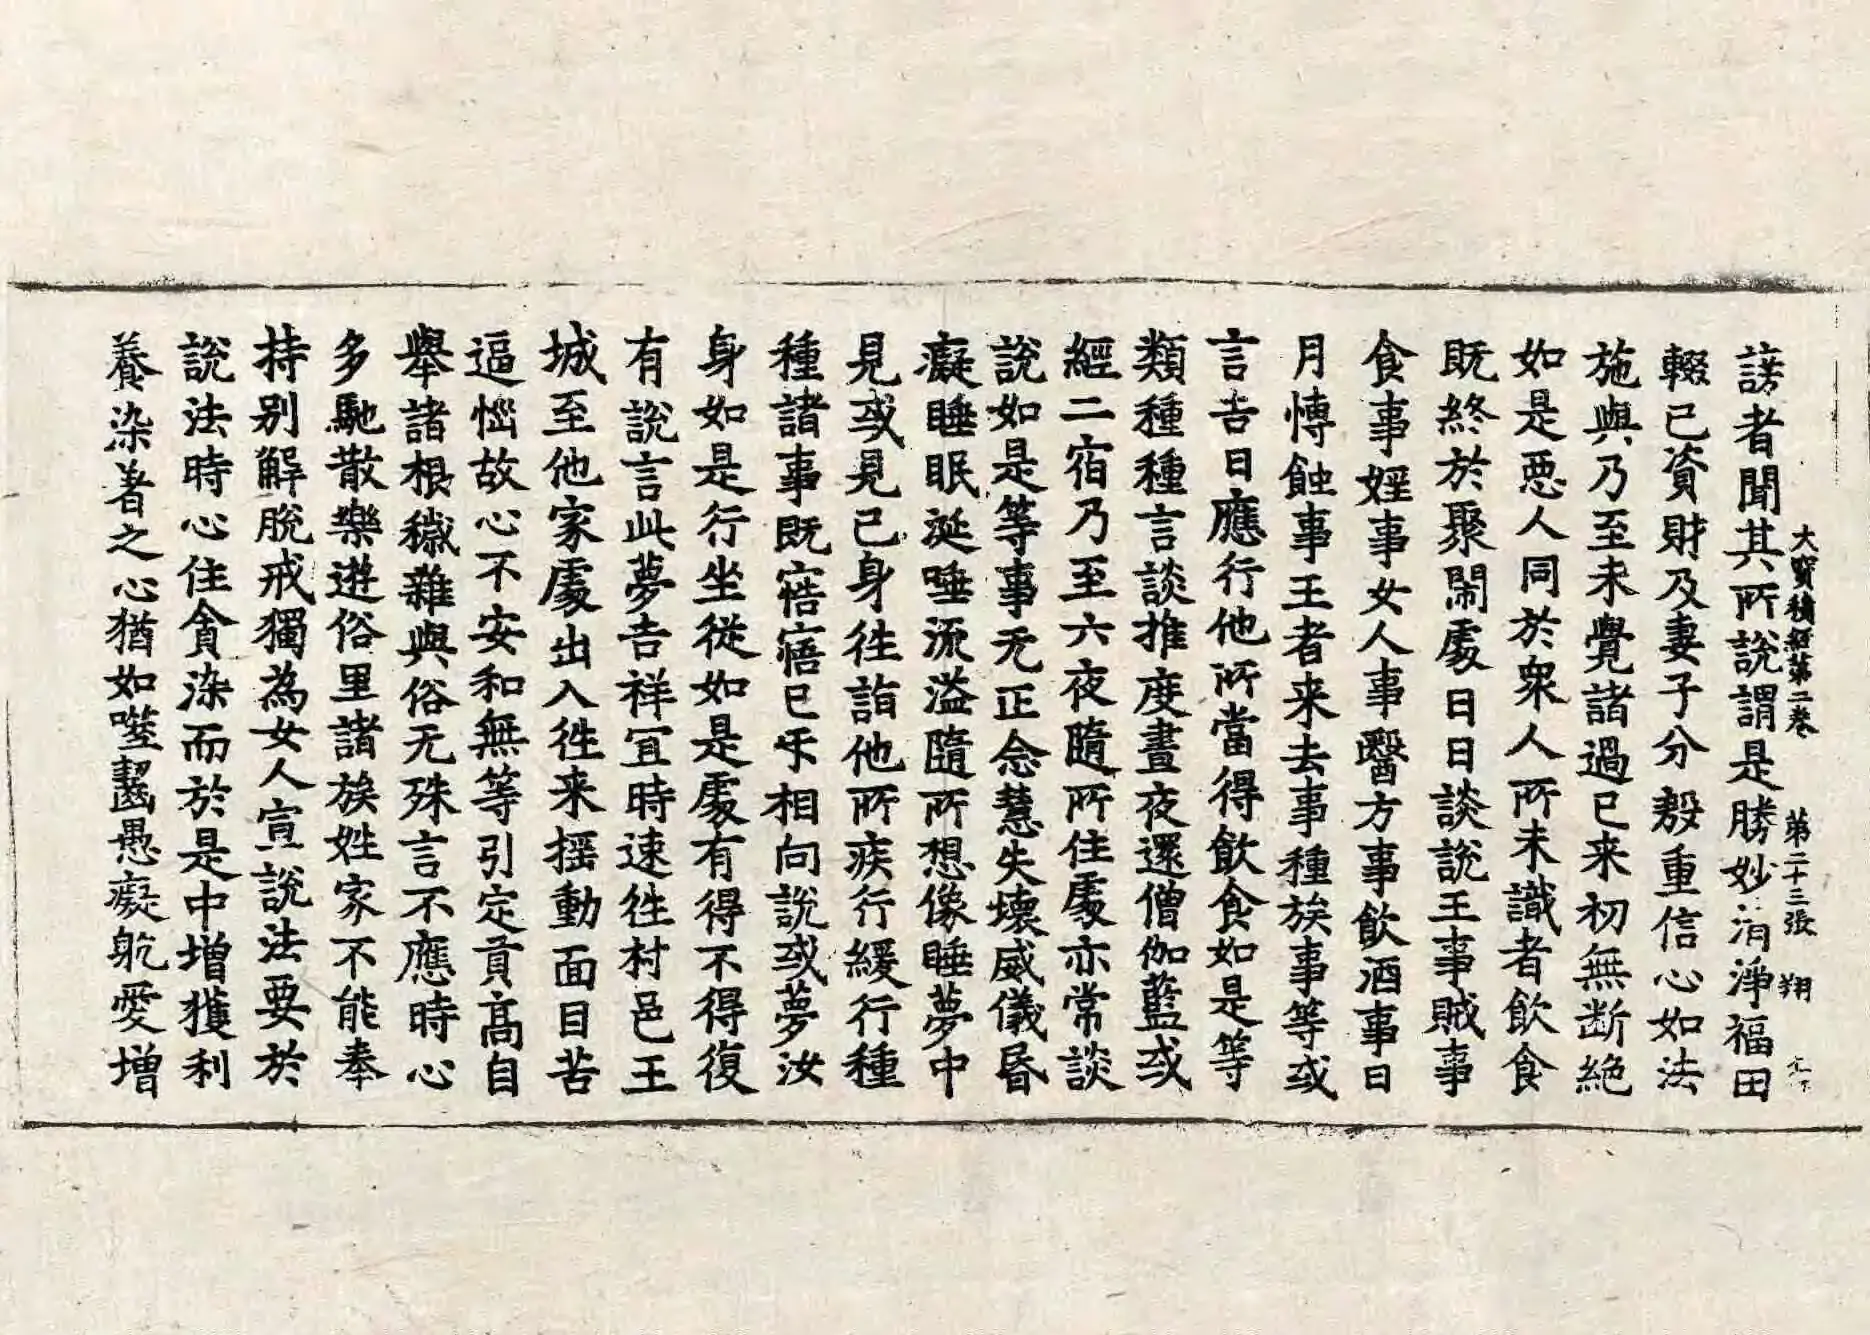 大寶積經第二卷 第二十三張 翔
謗者聞其所說謂是勝妙清淨福田
輟已資財及妻子分毅重信心如法
施與乃至未覺諸過已来初無断絶
如是惡人同於衆人所未識者飲食
既終於聚閙處日日談說王事賊事
食事婬事女人事醫方事飲酒事日
月愽蝕事王者来去事種族事等或
言吉日應行他所當得飲食如是等
類種種言談推度晝夜還僧伽藍或
經二宿乃至六夜隨所住處亦常談
說如是等事无正念慧失壞威儀昬
癡睡眠涎唾流溢隨所想像睡夢中
見或見己身往詣他所疾行緩行種
種諸事既寤寤已乎相向說或夢汝
身如是行坐從如是處有得不得復
有說言此夢吉祥宜時速往村邑王
城至他家處出入往来揺動面目苦
逼惱故心不安和無等引定貢髙自
舉諸根穢雜與俗无殊言不應時心
多馳散樂遊俗里諸族姓家不能奉
持别解脫戒獨為女人宣說法要於
說法時心住貪染而於是中增獲利
養染著之心猶如噬齧愚癡躭愛增